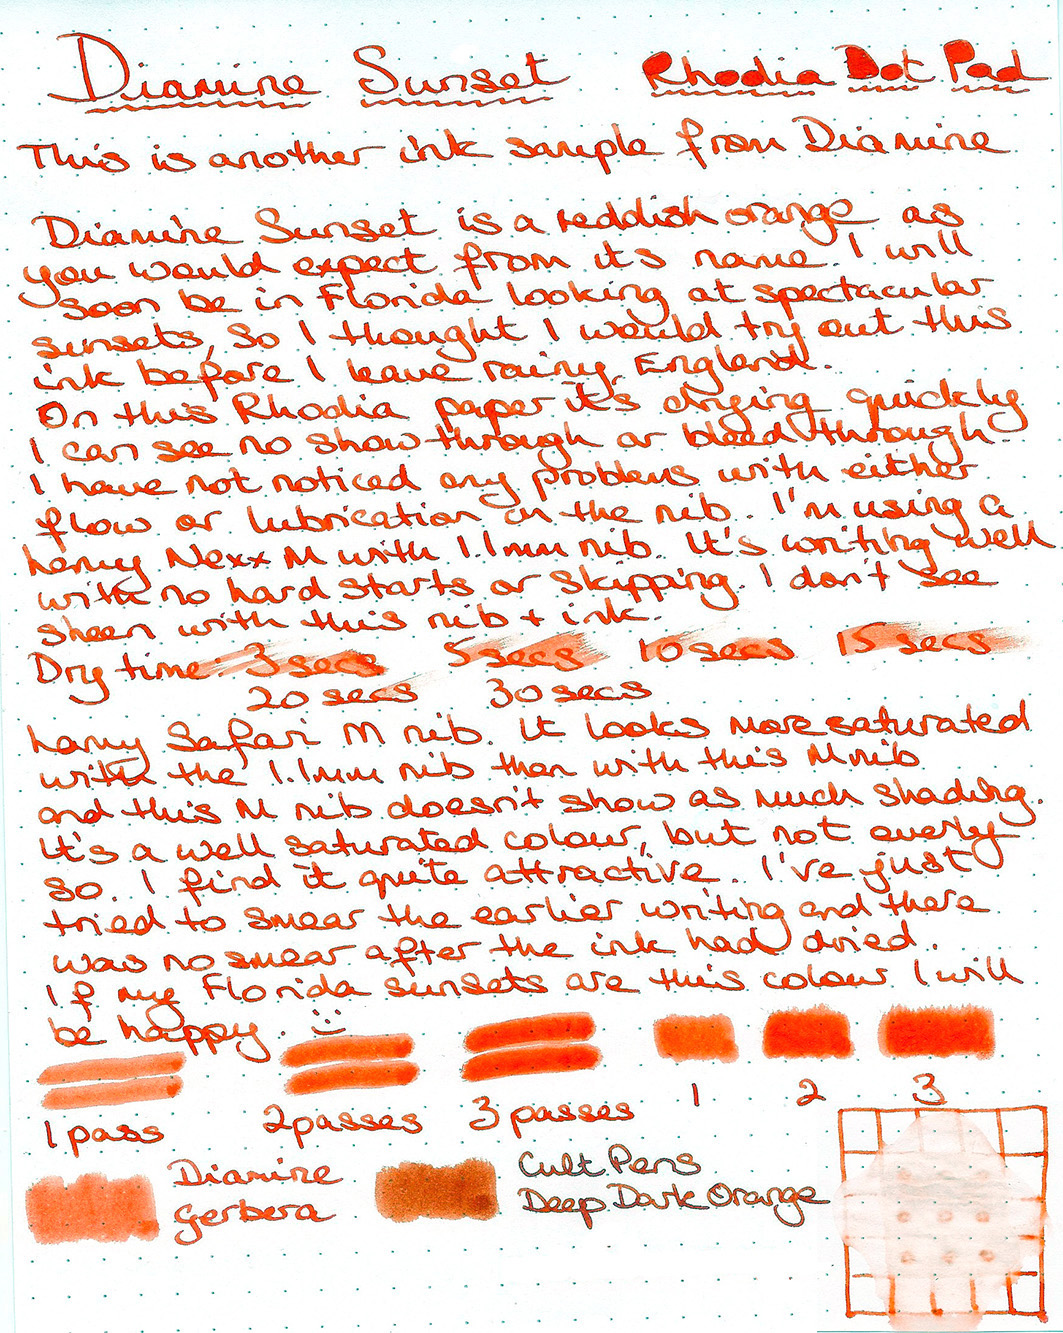 Diamine Sunset Rhodia Dot Pad
This is another ink sample from Diamine
Diamine Sunset is a reddish orange as
you would expect from its name. I will
soon be in Florida looking at spectacular
sunsets, so I thought I would try out this
ink before I leave rainy England.
On this Rhodia paper it's drying quickly
I can see no show-through or bleed through.
I have not noticed any problems with either
flow or lubrication in the nib. I'm using a
Lamy Nexx M with 1.1mm nib. It's writing well
with no hard starts or skipping. I don't see
sheen with this nib + ink.
Dry time: 3 secs 5 secs 10 secs 15 secs
20 secs 30 secs
Lamy Safari M nib. It looks more saturated
with the 1.1mm nib then with this M nib
and this M nib doesn't show as much shading.
It's a well saturated colour, but not overly
so. I find it quite attractive. I've just
tried to smear the earlier writing and there
was no smear after the ink had dried.
If my Florida sunsets are this colour I will
be happy. :)
1 pass 2 passes 3 passes 1 2 3
Diamine
Gerbera
Cult Pens
Deep Dark Orange